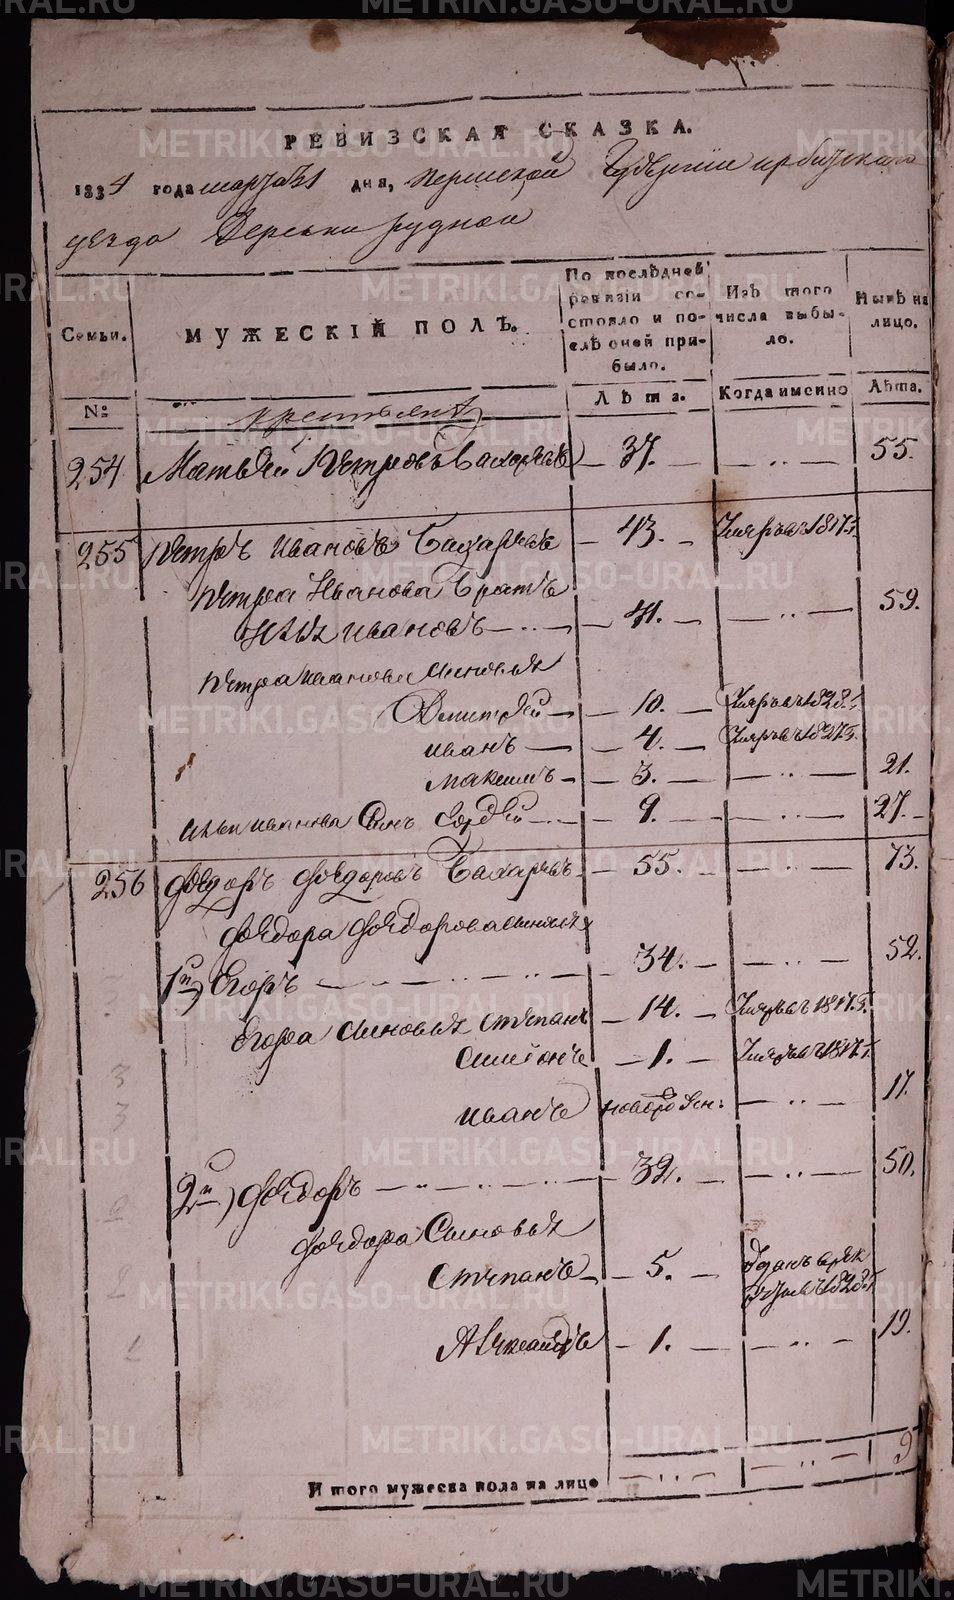 РЕВИЗСКАЯ СКАЗКА.
1834 года марта 31 дня, Пермской Губернии ирбитскаго
уезда Деревни рудной
Семьи.
МУЖЕСКІЙ ПОЛЪ.
По послѣдней ревизіи состояло и послѣ оней прибыло.
Изъ того числа выбыло.
Нынѣ на лицо.
№
Лѣта.
Когда именно
Лѣта.
крестьянъ
254 Матьвѣй Петровъ Бахаревъ 37. 55.
255 Петръ Ивановъ Бахаревъ 43. Умеръ въ 1817 г.
Петра Иванова братъ
Илья Ивановъ 41. 59.
Петра Иванова сыновья
Дмитрей 10. Умеръ въ 1828 г.
Иванъ 4. Умеръ въ 1827 г.
Максимъ 3. 21.
Ильи Иванова Сынъ Гордѣй 9. 27.
256 Фёдоръ Фёдоровъ Бахаревъ 55. 73.
Фёдора Фёдорова сыновья
1й) Егоръ 34. 52.
Егора сыновья Степанъ 14. Умеръ въ 1817 г.
Симеонъ 1. Умеръ въ 1817 г.
Иванъ новорожден: 17.
2й) Фёдоръ 32. 50.
Фёдора Сыновья
Степанъ 5. Отданъ в рек
руты въ 1828 г.
Александръ 1. 19.
И того мужеска пола на лицо 9
METRIKI.GASO-URAL.RU